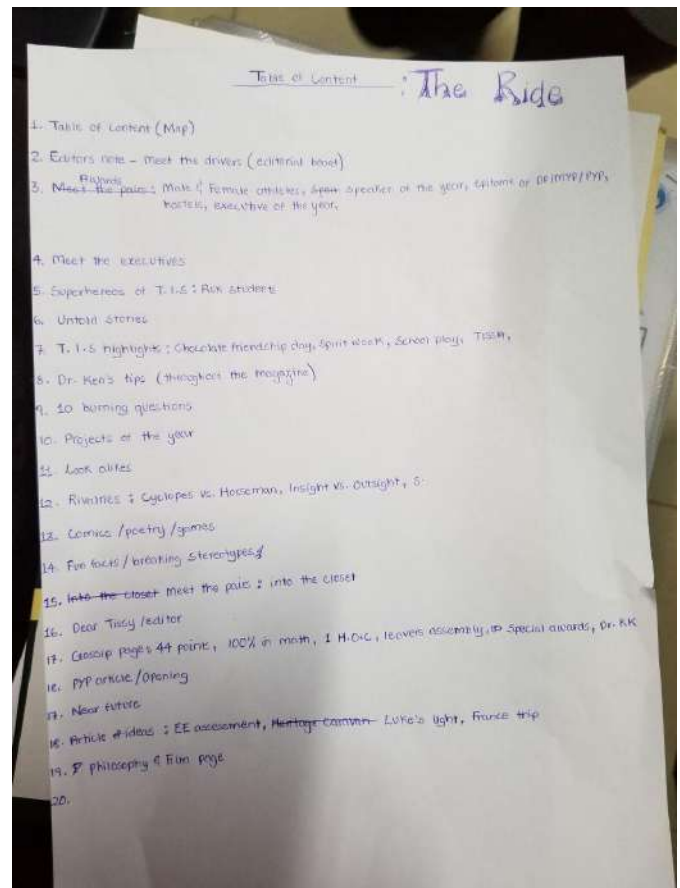 Table of Content : The Ride
1. Table of Content (Map)
2. Editors note - meet the drivers (editorial board)
Awards
3. Meet the pairs : Male & Female athletes, Spot Speaker of the year, epitome of DP/MYP/PYP,
hostels, executive of the year,
4. Meet the executives
5. Superheroes of T.I.S : Ron students
6. Untold Stories
7. T.I.S highlights : Chocolate friendship day, Spirit week, School play, TISSM,
8. Dr. Ken's tips (throughout the magazine)
9. 10 burning questions
10. Projects of the year
11. Look alikes
12. Rivalries : Cyclopes vs. Horseman, Insight vs. Outsight, S.
13. Comics / poetry / games
14. Fun facts / breaking stereotypes
15. Into the closet meet the pairs : into the closet
16. Dear Tissy / editor
17. Gossip page : 44 point, 100% in math, I H.O.C, leavers assembly, Special awards, Dr. KK
18. PYP article / opening
17. Near future
18. Article ideas : EE assessment, Heritage Caravan Luke's light, France trip
19. philosophy & Film page
20.